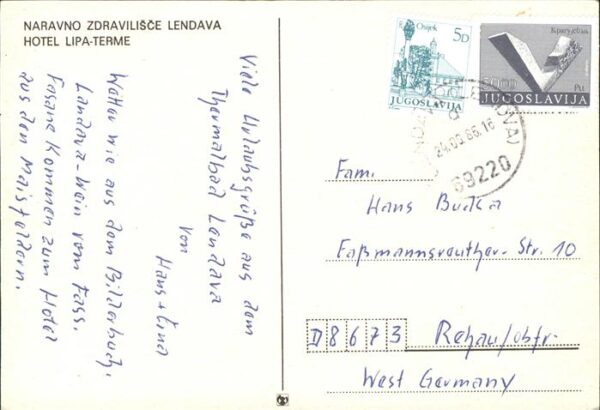 NARAVNO ZDRAVILIŠČE LENDAVA
HOTEL LIPA-TERME
Viele Urlaubsgrüße aus dem
Thermalbad Lendava
von
Hans + Erna
Wetter wie aus dem Bilderbuch.
Landava-Wein vom Fass.
Fasane kommen zum Hotel
aus den Maisfeldern.
Osijek
5D
JUGOSLAVIJA
JUGOSLAVIJA
24.09.86.16
69220
Fam.
Hans Burka
Faßmannsreuther-Str. 10
D 8673 Rehau/obfr.
West Germany